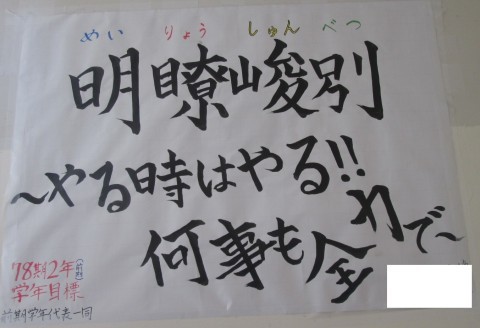 めい りょう しゅん べつ
明瞭峻別
～やる時はやる!!
何事も全力で～
78期2年(前期)
学年目標
前期学年代表一同